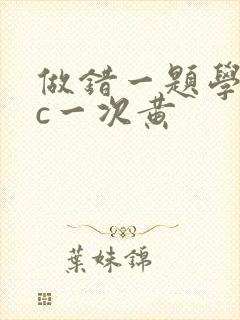 做錯一題學
c一次黃
葉妹錦